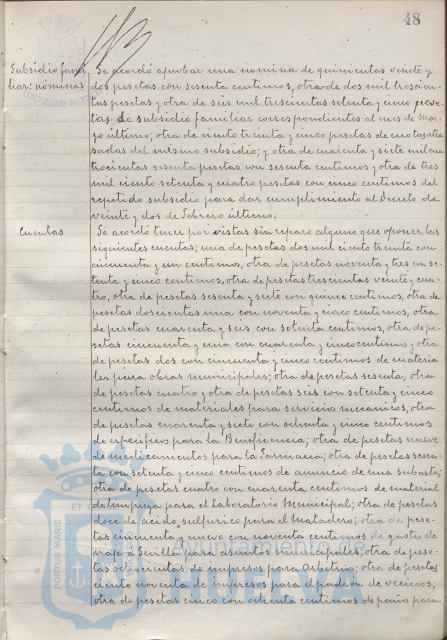 48
Subsidio fami
liar: nominas
Se acordó aprobar una nomina de quinientas veinte y
dos pesetas con sesenta centimos, otra de dos mil trescien-
tas pesetas y otra de seis mil trescientas setenta y cinco pese-
tas de subsidio familiar correspondientes al mes de Mar-
zo último; otra de ciento treinta y cinco pesetas de cuotas atra
sadas del mismo subsidio; y otra de cuarenta y siete mil cua
trocientas sesenta pesetas con sesenta centimos y otra de tres
mil ciento setenta y cuatro pesetas con cinco centimos del
repetido subsidio para dar cumplimiento al Decreto de
veinte y dos de Febrero último.
Cuentas
Se acordó tener por vistas sin reparo alguno que oponer, las
siguientes cuentas; una de pesetas dos mil ciento treinta con
cincuenta y un centimos, otra de pesetas noventa y tres con se-
tenta y cinco centimos, otra de pesetas trescientas veinte y cua-
tro, otra de pesetas sesenta y siete con quince centimos, otra de
pesetas doscientas una con noventa y cinco centimos, otra
de pesetas cuarenta y seis con setenta centimos, otra de pe-
setas cincuenta y una con cuarenta y cinco centimos y otra
de pesetas dos con cincuenta y cinco centimos de materia
les para obras municipales; otra de pesetas sesenta, otra
de pesetas cuatro y otra de pesetas seis con setenta y cinco
centimos de materiales para servicio mecanicos; otra
de pesetas cuarenta y siete con ochenta y cinco centimos
de especificos para la Beneficencia; otra de pesetas nueve
de medicamentos para la Farmacia; otra de pesetas sesen-
ta con setenta y cinco centimos de anuncio de una subasta;
otra de pesetas cuatro con cuarenta centimos de material
de limpieza para el Laboratorio Municipal; otra de pesetas
doce de acido sulfurico para el Matadero; otra de pese-
tas cincuenta y nueve con noventa centimos de gastos de
viaje a Sevilla para asuntos municipales; otra de pese-
tas ochocientas de impresos para Arbitrios; otra de pesetas
ciento noventa de impresos para el padrón de vecinos;
otra de pesetas cinco con ochenta centimos de paño para
PORTUS MARIS
ET T
Ayuntamiento de
HUELVA